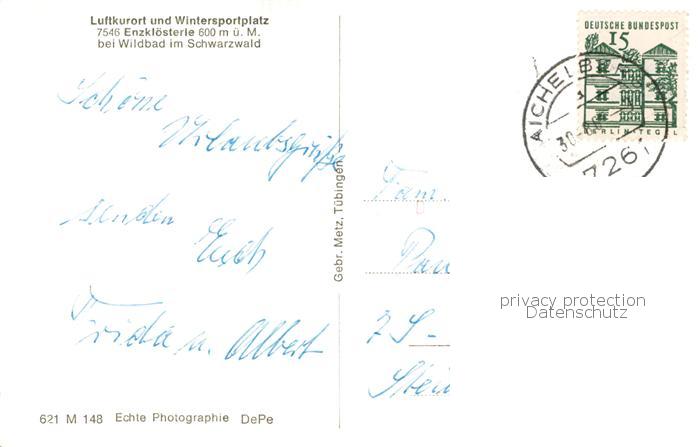 Luftkurort und Wintersportplatz
7546 Enzklösterle 600 m ü. M.
bei Wildbad im Schwarzwald
DEUTSCHE BUNDESPOST
15
BERLIN-TEGEL
AICHELB
30.
726
Schöne
Urlaubsgrüße
senden
Euch
Frida u. Albert
Gebr. Metz, Tübingen
Fam.
Pau
7 S -
Stein
privacy protection
Datenschutz
621 M 148 Echte Photographie DePe